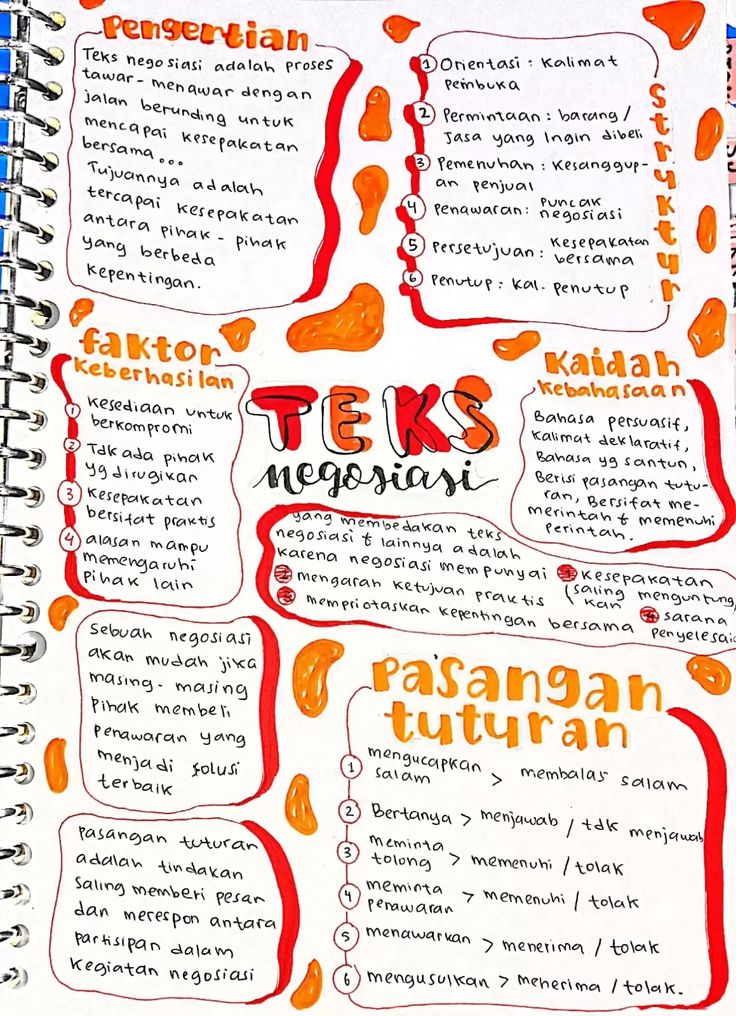 Pengertian
Teks negosiasi adalah proses
tawar-menawar dengan
jalan berunding untuk
mencapai kesepakatan
bersama...
Tujuannya adalah
tercapai kesepakatan
antara pihak-pihak
yang berbeda
kepentingan.
Struktur
1 Orientasi : kalimat
pembuka
2 Permintaan : barang /
Jasa yang Ingin dibeli
3 Pemenuhan : kesanggup-
an penjual
4 Penawaran : puncak
negosiasi
5 Persetujuan : kesepakatan
bersama
6 Penutup : kal. penutup
faktor
keberhasilan
1 kesediaan untuk
berkompromi
2 Tdk ada pihak
yg dirugikan
3 kesepakatan
bersifat praktis
4 alasan mampu
memengaruhi
pihak lain
TEKS
negosiasi
Kaidah
kebahasaan
Bahasa persuasif,
kalimat deklaratif,
Bahasa yg santun,
Berisi pasangan tutu-
ran, Bersifat me-
merintah & memenuhi
perintah.
yang membedakan teks
negosiasi & lainnya adalah
karena negosiasi mempunyai 1 kesepakatan
(saling menguntung
kan
2 mengarah ketujuan praktis
3 mempriotaskan kepentingan bersama 4 sarana
penyelesai
Sebuah negosiasi
akan mudah jika
masing-masing
pihak memberi
penawaran yang
menjadi solusi
terbaik
Pasangan tuturan
adalah tindakan
saling memberi pesan
dan merespon antara
partisipan dalam
kegiatan negosiasi
Pasangan
tuturan
1 mengucapkan salam > membalas salam
2 Bertanya > menjawab / tdk menjawab
3 meminta tolong > memenuhi / tolak
4 meminta penawaran > memenuhi / tolak
5 menawarkan > menerima / tolak
6 mengusulkan > menerima / tolak.